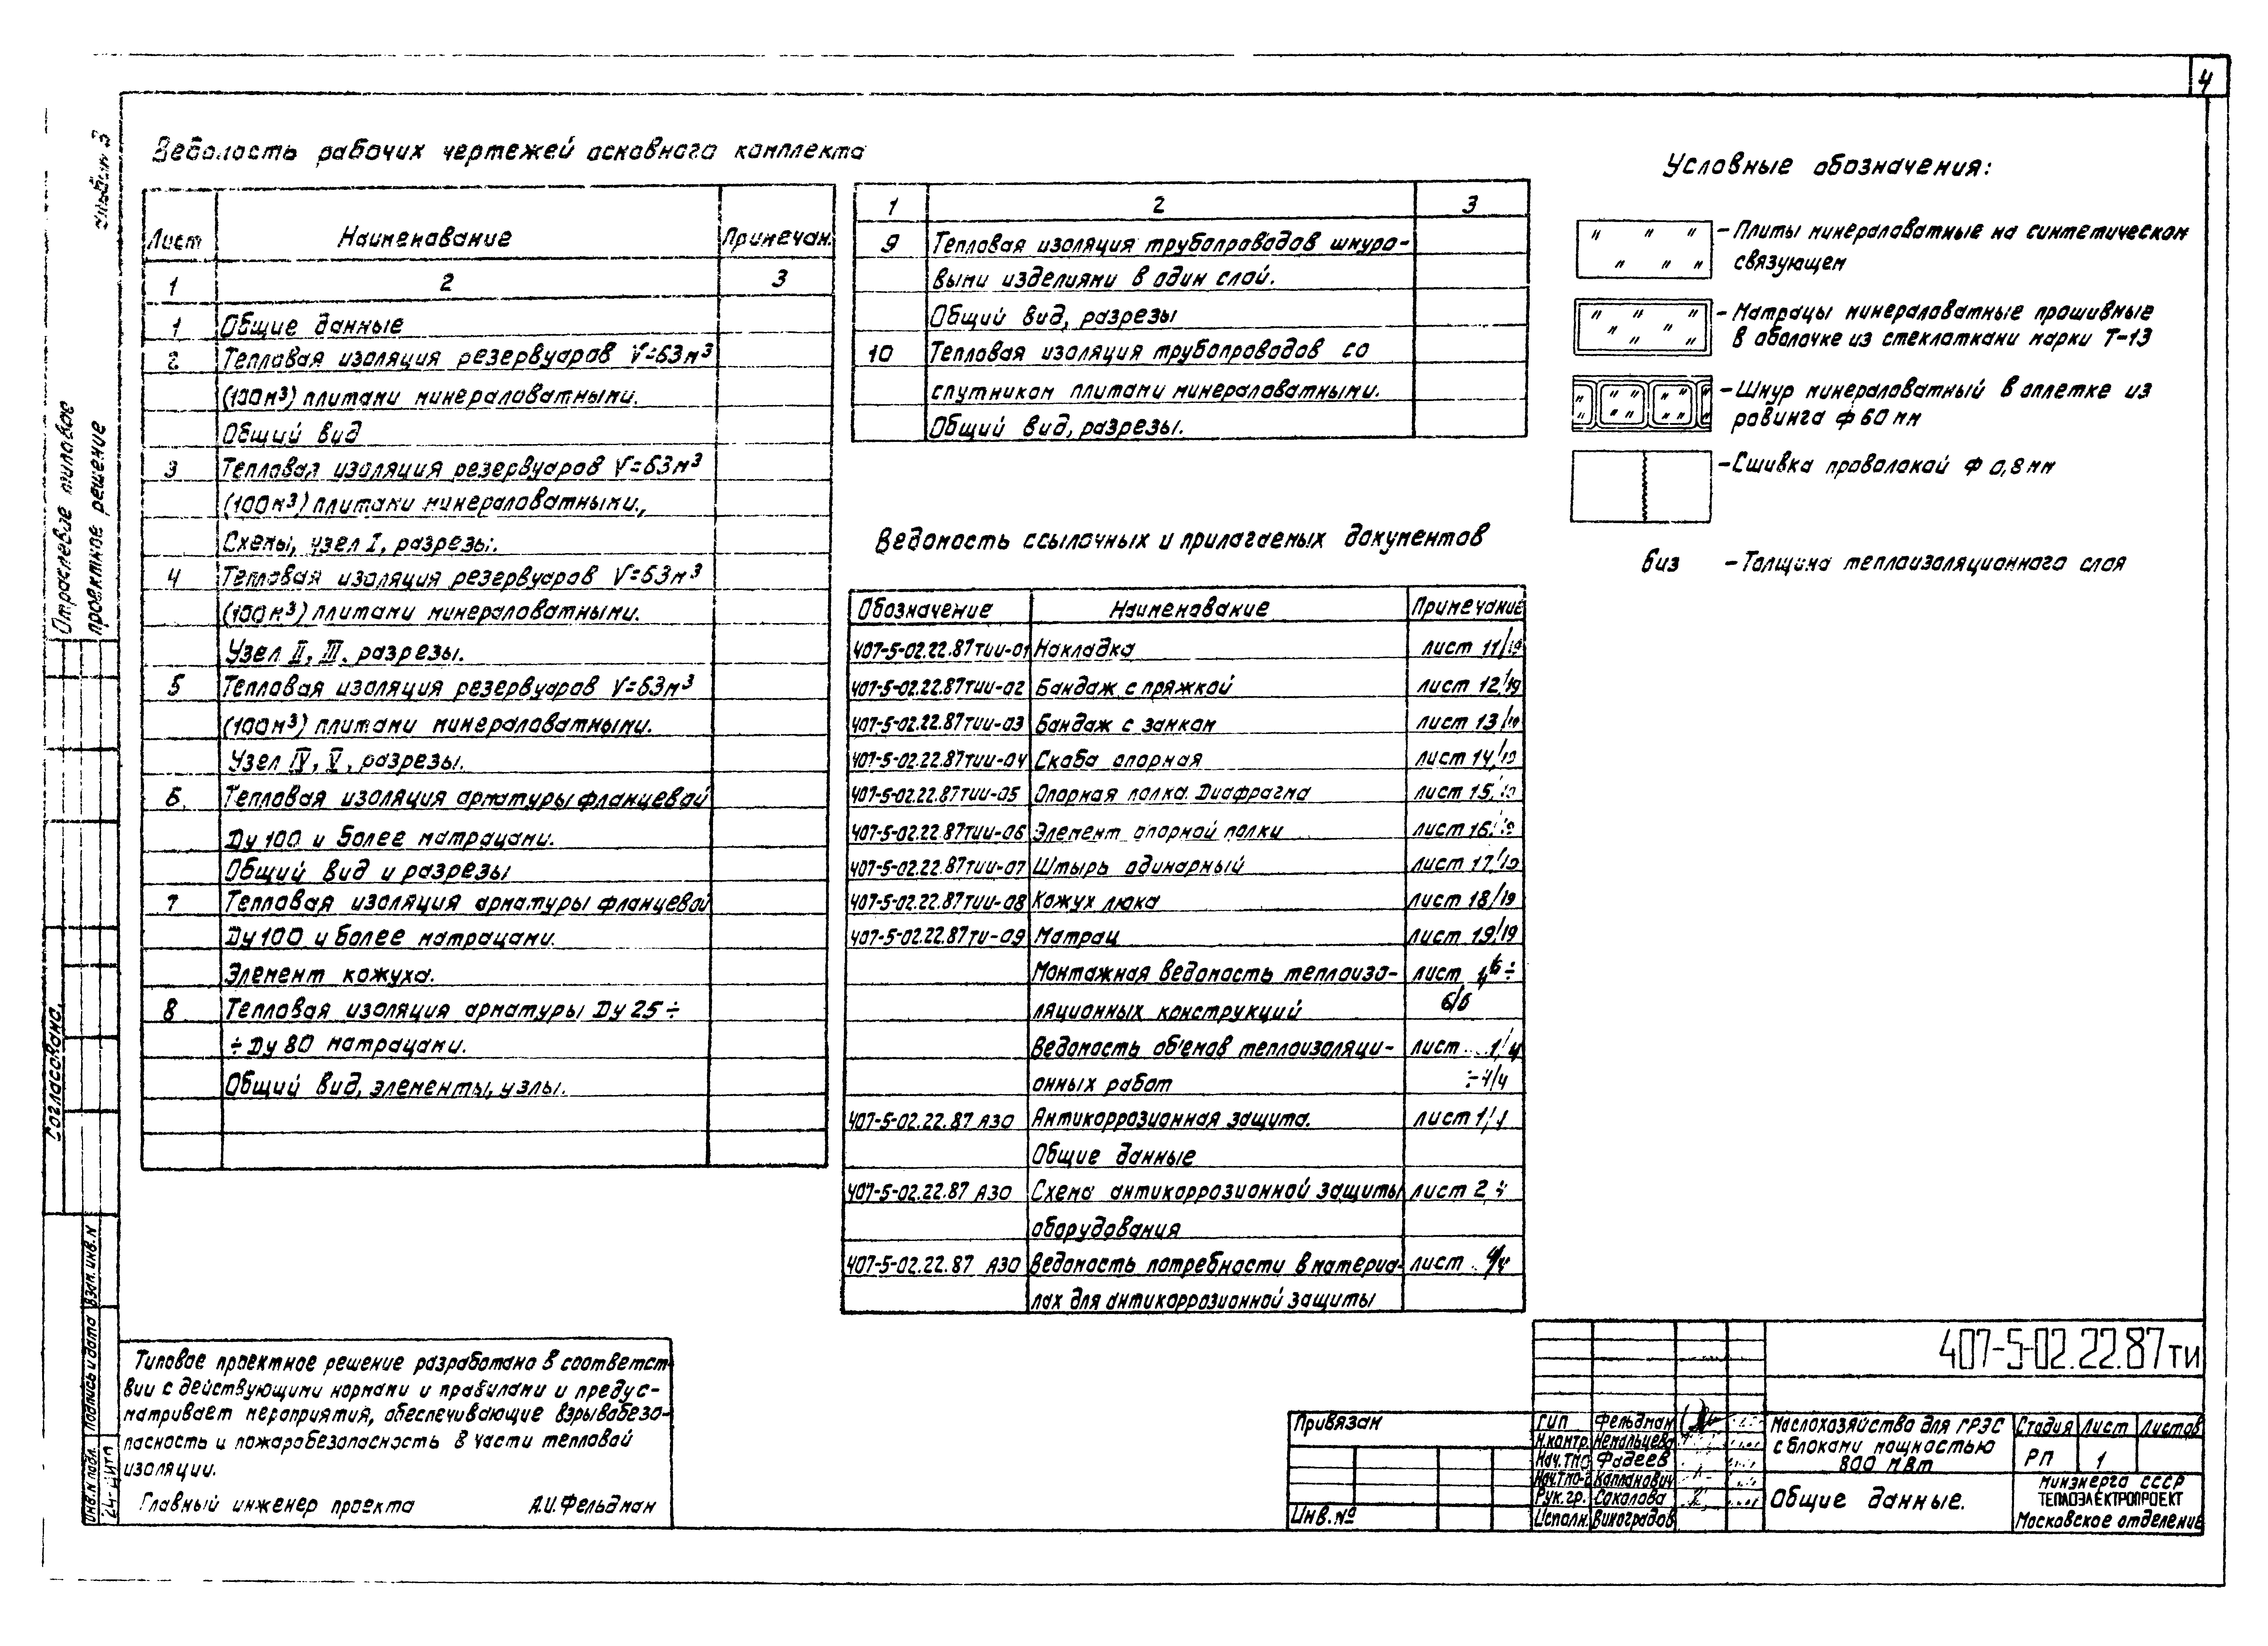 4
Альбом 3
Отраслевое типовое
проектное решение
Согласовано
Взам. инв. N
Подпись и дата
Инв. N подл.
Ведомость рабочих чертежей основного комплекта
Лист Наименование Примечан.
1 2 3
1 Общие данные
2 Тепловая изоляция резервуаров V=63м³
(100м³) плитами минераловатными.
Общий вид
3 Тепловая изоляция резервуаров V=63м³
(100м³) плитами минераловатными.,
Схемы, узел I, разрезы.
4 Тепловая изоляция резервуаров V=63м³
(100м³) плитами минераловатными.
Узел II, III, разрезы.
5 Тепловая изоляция резервуаров V=63м³
(100м³) плитами минераловатными.
Узел IV, V, разрезы.
6. Тепловая изоляция арматуры фланцевой
Ду 100 и более матрацами.
Общий вид и разрезы
7 Тепловая изоляция арматуры фланцевой
Ду 100 и более матрацами.
Элемент кожуха.
8 Тепловая изоляция арматуры Ду 25÷
÷Ду 80 матрацами.
Общий вид, элементы, узлы.
1 2 3
9 Тепловая изоляция трубопроводов шнуро-
выми изделиями в один слой.
Общий вид, разрезы
10 Тепловая изоляция трубопроводов со
спутником плитами минераловатными.
Общий вид, разрезы.
Ведомость ссылочных и прилагаемых документов
Обозначение Наименование Примечание
407-5-02.22.87ТИИ-01 Накладка лист 11/19
407-5-02.22.87ТИИ-02 Бандаж с пряжкой лист 12/19
407-5-02.22.87ТИИ-03 Бандаж с замком лист 13/19
407-5-02.22.87ТИИ-04 Скоба опорная лист 14/19
407-5-02.22.87ТИИ-05 Опорная полка. Диафрагма лист 15/19
407-5-02.22.87ТИИ-06 Элемент опорной полки лист 16/19
407-5-02.22.87ТИИ-07 Штырь одинарный лист 17/19
407-5-02.22.87ТИИ-08 Кожух люка лист 18/19
407-5-02.22.87ТИ-09 Матрац лист 19/19
Монтажная ведомость теплоизо- лист 1/6÷
ляционных конструкций 6/6
Ведомость об'емов теплоизоляци- лист 1/4
онных работ ÷4/4
407-5-02.22.87 АЗО Антикоррозионная защита. лист 1/4
Общие данные
407-5-02.22.87 АЗО Схема антикоррозионной защиты лист 2
оборудования
407-5-02.22.87 АЗО Ведомость потребности в материа- лист 4/4
лах для антикоррозионной защиты
Условные обозначения:
-Плиты минераловатные на синтетическом
связующем
-Матрацы минераловатные прошивные
в оболочке из стеклоткани марки Т-13
-Шнур минераловатный в оплетке из
ровинга ф 60 мм
-Сшивка проволокой ф 0,8мм
биз -Толщина теплоизоляционного слоя
Типовое проектное решение разработано в соответст-
вии с действующими нормами и правилами и предус-
матривает мероприятия, обеспечивающие взрывобезо-
пасность и пожаробезопасность в части тепловой
изоляции.
Главный инженер проекта А.И.Фельдман
Привязан
Инв.№
407-5-02.22.87ТИ
ГИП Фельдман
Н.контр. Немальцева
Нач.ТМО Фадеев
Нач.ТМО-2 Капланович
Рук.гр. Соколова
Исполн. Виноградов
Маслохозяйство для ГРЭС
с блоками мощностью
800 МВт
Стадия Лист Листов
РП 1
Общие данные.
Минэнерго СССР
ТЕПЛОЭЛЕКТРОПРОЕКТ
Московское отделение